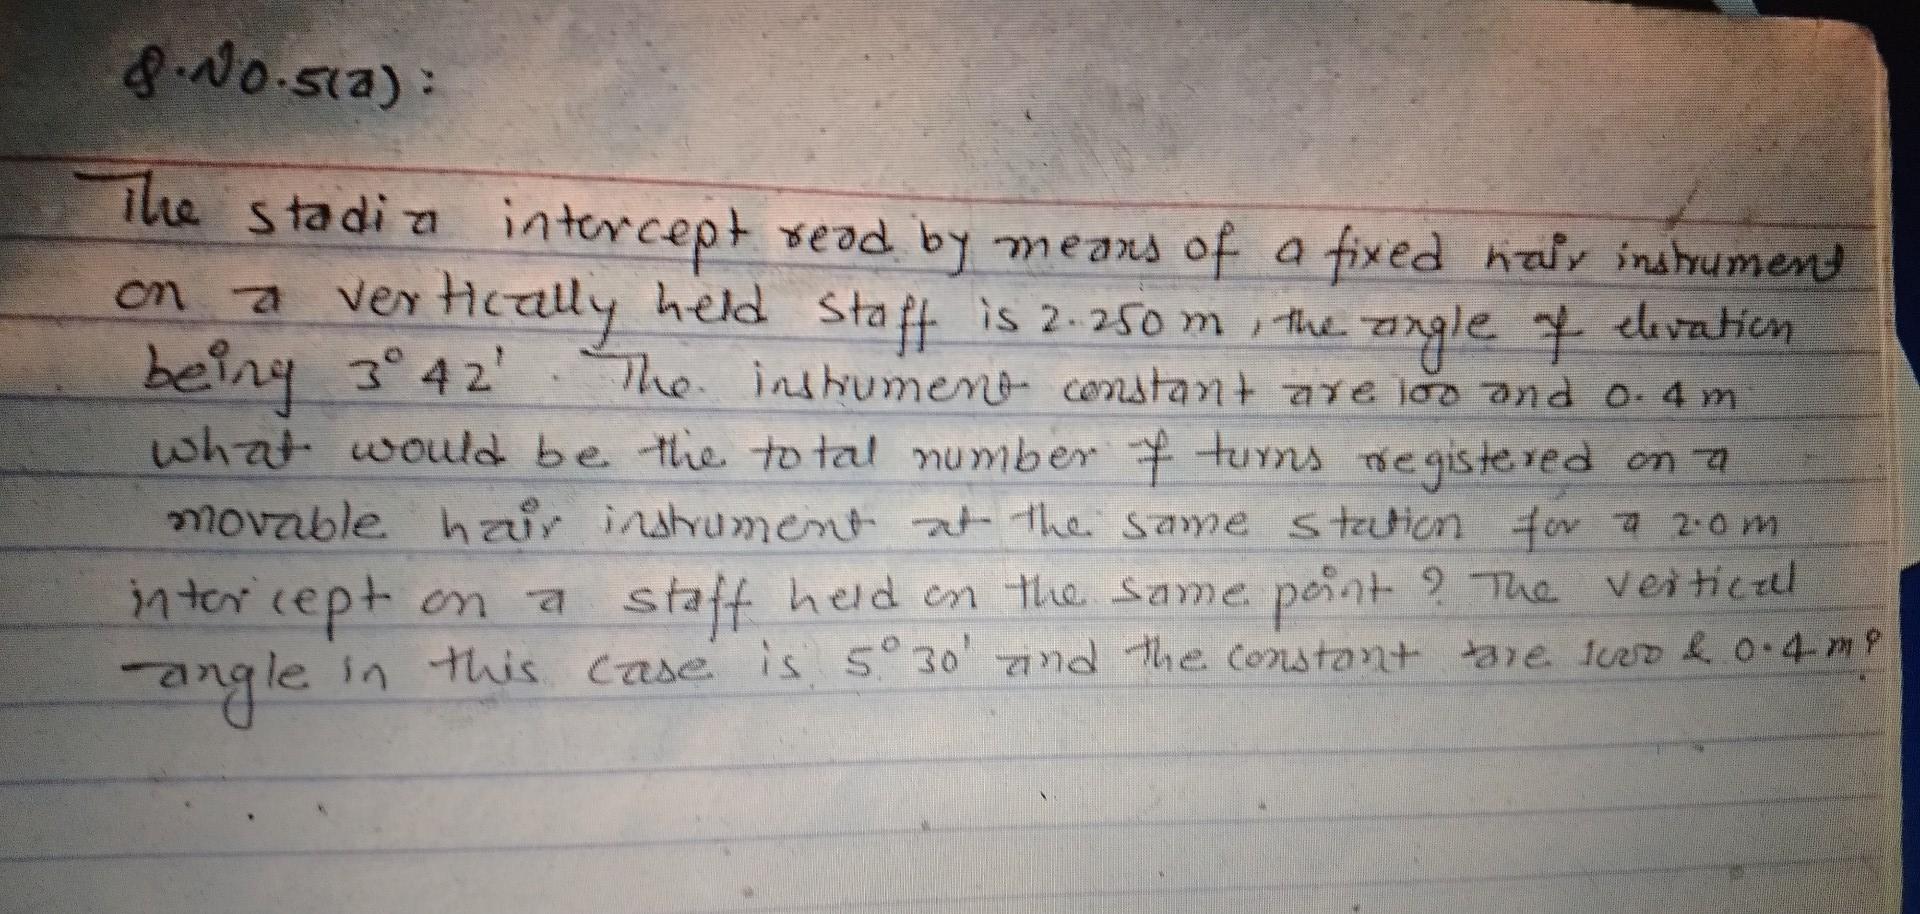 Q.No.5(a):
The stadia intercept read by means of a fixed hair instrument
on a vertically held staff is 2.250 m, the angle of elevation
being 3° 42'. The instrument constant are 100 and 0.4 m
what would be the total number of turns registered on a
movable hair instrument at the same station for a 2.0 m
intercept on a staff held on the same point? The vertical
angle in this case is 5° 30' and the constant are 1000 & 0.4 m?